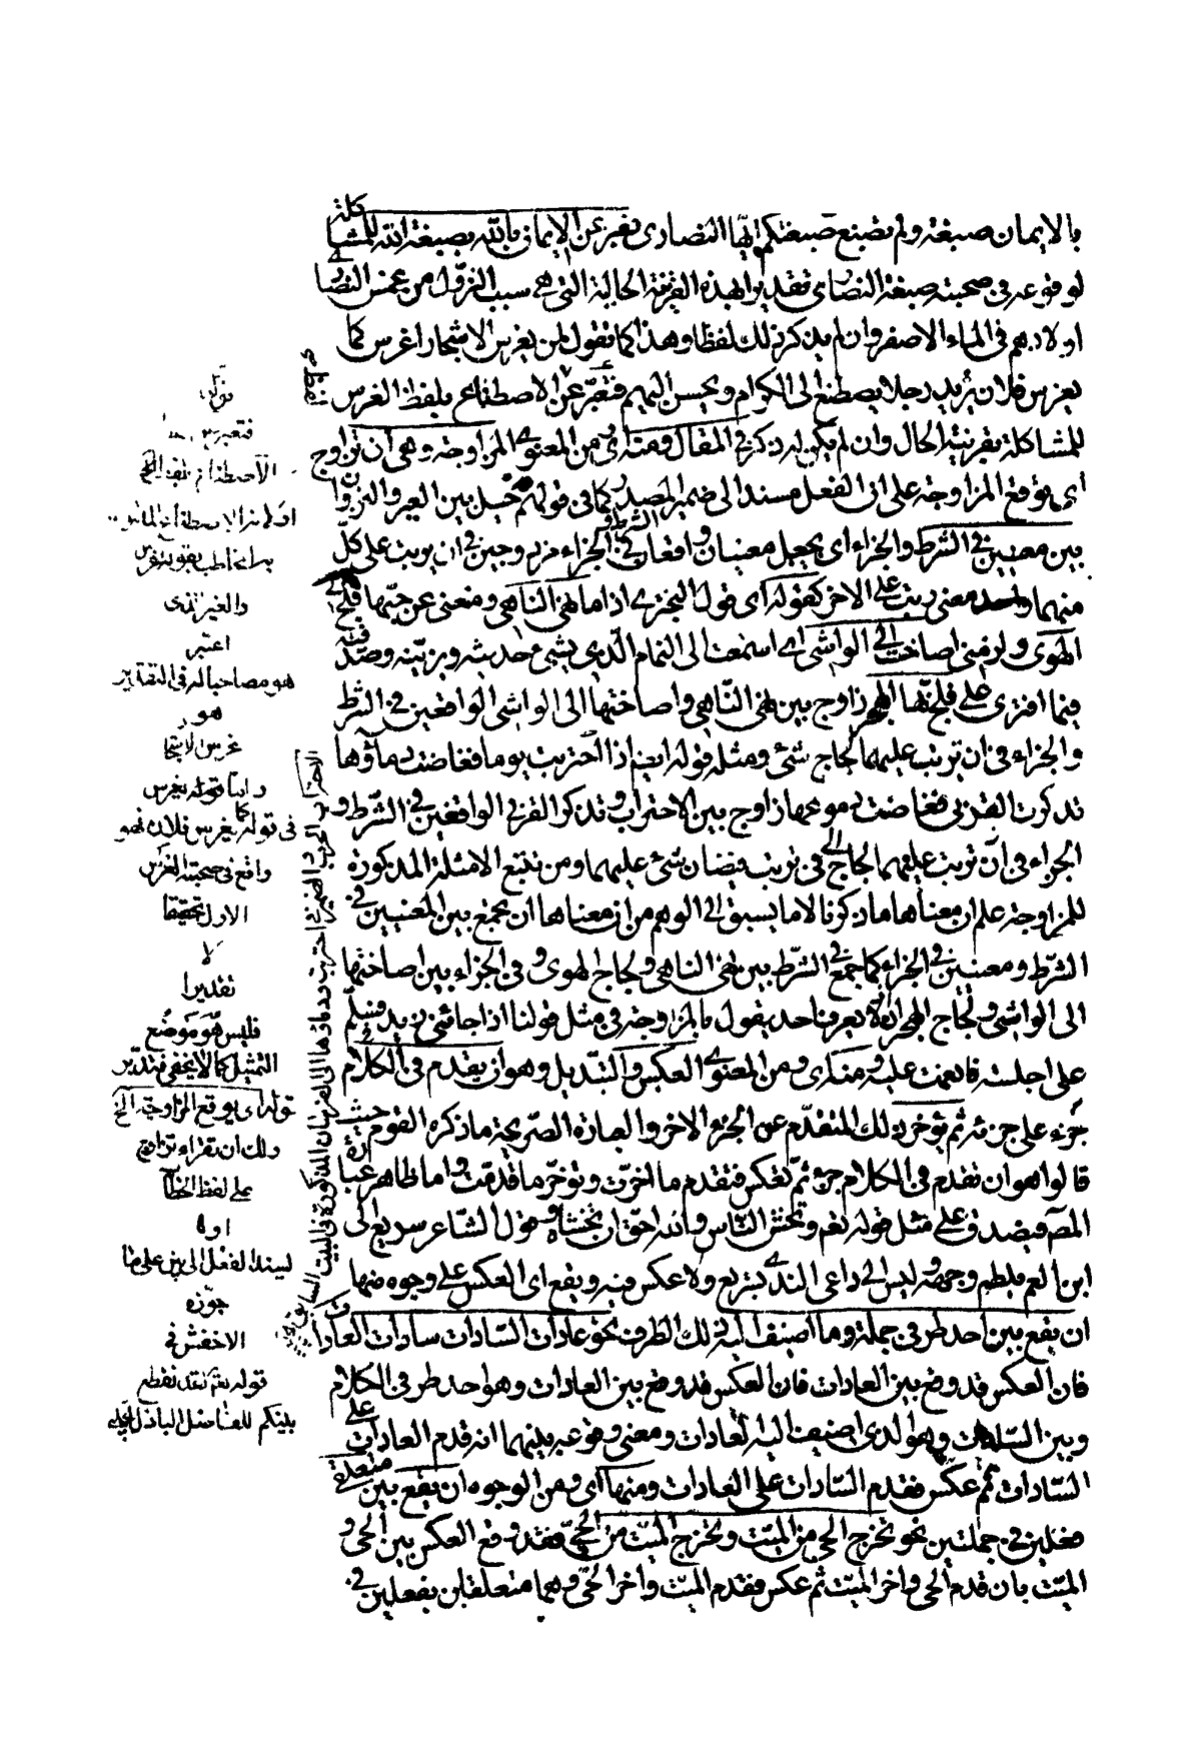 بالايمان صبغته ولم نصبغ صبغتكم ايّها النصارى فعبر عن الايمان بالله بصبغة الله للمشاكلة
لوقوعه فى صحبته صبغة النصارى تقديرا بهذه القرينة الحالية التى هى سبب النزول من غمس النصارى
اولادهم فى الماء الاصفر وان لم يذكر ذلك لفظا وهذا كما تقول لمن يغرس الاشجار اغرس كما
يغرس فلان تريد رجلا يصطنع الى الكرام ويحسن اليهم فتعبّر عن الاصطناع بلفظ الغرس
للمشاكلة بقرينة الحال وان لم يكن له ذكر فى المقال ومنه اى من المعنوى المزاوجة وهى ان تزاوج
اى يوقع المزاوجة على ان الفعل مسندا الى ضمير المصدر كما فى قولهم حيل بين العير والنزوان
بين معنيين فى الشرط والجزاء اى يجعل معنيان واقعان فى الشرط والجزاء مزدوجين فى ان يرتب على كلّ
منهما معنى رتب على الاخر كقوله اى قول البحترى اذا ما نهى الناهى ومنعنى عن حبّها فلجّ بى
الهوى ولزمنى اصاخت الى الواشى اى استمعت الى النمام الّذى يشى حديثه ويزيّنه وصدّقته
فيما افترى على فلجّ بها الهجر زاوج بين نهى النّاهى واصاختها الى الواشى الواقعين فى الشرط
والجزاء فى ان ترتب عليهما لجاج شئ ومثله قوله ايضا اذا احتربت يوما ففاضت دماؤها
تذكرت القربى ففاضت دموعها زاوج بين الاحتراب وتذكر القربى الواقعين فى الشّرط و
الجزاء فى ان ترتب عليهما فى ترتب فيضان شئ عليهما ومن تتبع الامثلة المذكورة
للمزاوجة علم ان معناها ما ذكرنا لا ما يسبق الى الوهم من ان معناها ان يجمع بين المعنيين فى
الشّرط ومعنيين فى الجزاء كما جمع فى الشّرط بين نهى الناهى ولجاج الهوى وفى الجزاء بين اصاختها
الى الواشى ولجاج الهجر اذ لا يعرف احد يقول بالمزاوجة فى مثل قولنا اذا جاءنى زيد فسلّم
على اجلسته فانعمت عليه ومنه اى ومن المعنوى العكس والتبديل وهو ان يقدم فى الكلام
جزء على جزء ثم يؤخر ذلك المتقدّم عن الجزء الاخر والعبارة الصّريحة ما ذكره القوم حيث
قالوا هو ان تقدم فى الكلام جزء ثمّ تعكس فتقدم ما اخرّت وتؤخّر ما قدمّت واما ظاهر عبارة
المصّ فيصدق على مثل قوله تعم وتخشى النّاس والله احقّ ان تخشاه وقول الشّاعر سريع الى
ابن العم يلطم وجهه وليس الى داعى الندى بسريع ولا عكس فيه ويقع اى العكس على وجوه منها
ان يقع بين احد طرفى جملة وما اضيف اليه ذلك الطرف نحو عادات السّادات سادات العادات
فان العكس قد وقع بين العادات وهو احد طرفى الكلام
وبين السّادات وهو الذى اضيف اليه العادات ومعنى وقوعه بينهما انه قدم العادات على
السّادات ثم عكس فقدم السّادات على العادات ومنها اى ومن الوجوه ان يقع بين متعلقى
فعلين فى جملتين نحو تخرج الحى من الميّت وتخرج الميّت من الحىّ فقد وقع العكس بين الحى و
الميّت بان قدم الحى واخر الميّت ثم عكس فقدم الميّت واخر الحىّ وهما متعلقان بفعلين فى
والغير الذى
اعتبر
هو مصاحبا له فى التقدير
هو
غرس الاشجار
واما قوله يغرس
فى قوله كما يغرس فلان فهو
واقع فى صحبته الغرس
الاول تحقيقا
لا
تقديرا
فليس هو موضع
التمثيل كما لا يخفى فتدبّر
قوله اى يوقع المزاوجة الخ
وذلك ان تقراء تزاوج
على لفظ الخطاب
اولا
جوّزه
الاخفش فى
قوله تعم لقد تقطع
بينكم للفاضل